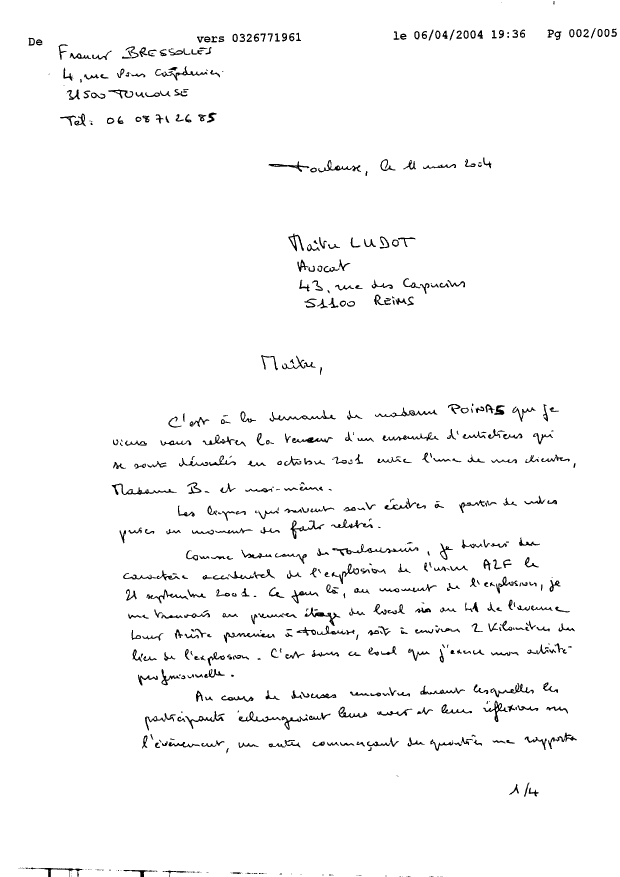 De vers 0326771961 le 06/04/2004 19:36 Pg 002/005
BRESSOLLES
4, rue
31500 TOULOUSE
Tél: 06 08 71 26 85
Toulouse, le 11 mars 2004
Maître LUDOT
Avocat
43, rue des Capucins
51100 REIMS
Maître,
C'est à la demande de madame POINAS que je
viens vous relater la teneur d'un ensemble d'entretiens qui
se sont déroulés en octobre 2001 entre l'une de mes clientes,
Madame B. et moi-même.
Les lignes qui suivent sont écrites à partir de notes
prises au moment des faits relatés.
Comme beaucoup de Toulousains, je doutais du
caractère accidentel de l'explosion de l'usine AZF le
21 septembre 2001. Ce jour là, au moment de l'explosion, je
me trouvais au premier étage du local sis au 41 de l'avenue
à Toulouse, soit à environ 2 Kilomètres du
lieu de l'explosion. C'est dans ce local que j'exerce mon activité
professionnelle.
Au cours de diverses rencontres durant lesquelles les
participants échangeaient leurs avis et leurs réflexions sur
l'évènement, un autre commerçant du quartier me rapporta
1/4